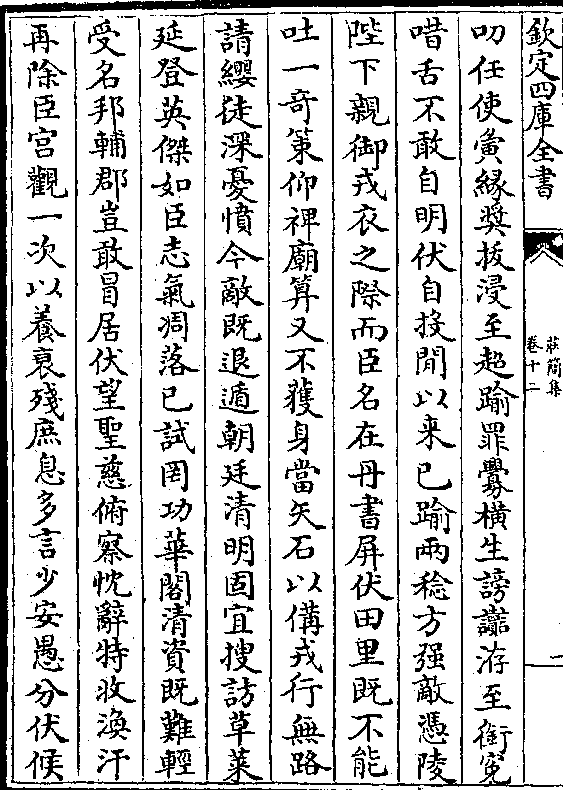 欽定四庫全書
莊簡集
卷十二
叨任使夤緣奬拔浸至超踰罪釁横生謗讟洊至銜寃
唶舌不敢自明伏自投閒以来已踰兩稔方强敵憑陵
陛下親御戎衣之際而臣名在丹書屏伏田里既不能
吐一竒策仰裨廟算又不獲身當矢石以備戎行無路
請纓徒深憂憤今敵既退遁朝廷清明固宜搜訪草萊
延登英傑如臣志氣凋落已試罔功華閣清資既難輕
受名邦輔郡豈敢冒居伏望聖慈俯察忱辭特收渙汗
再除臣宫觀一次以養衰殘庶息多言少安愚分伏候